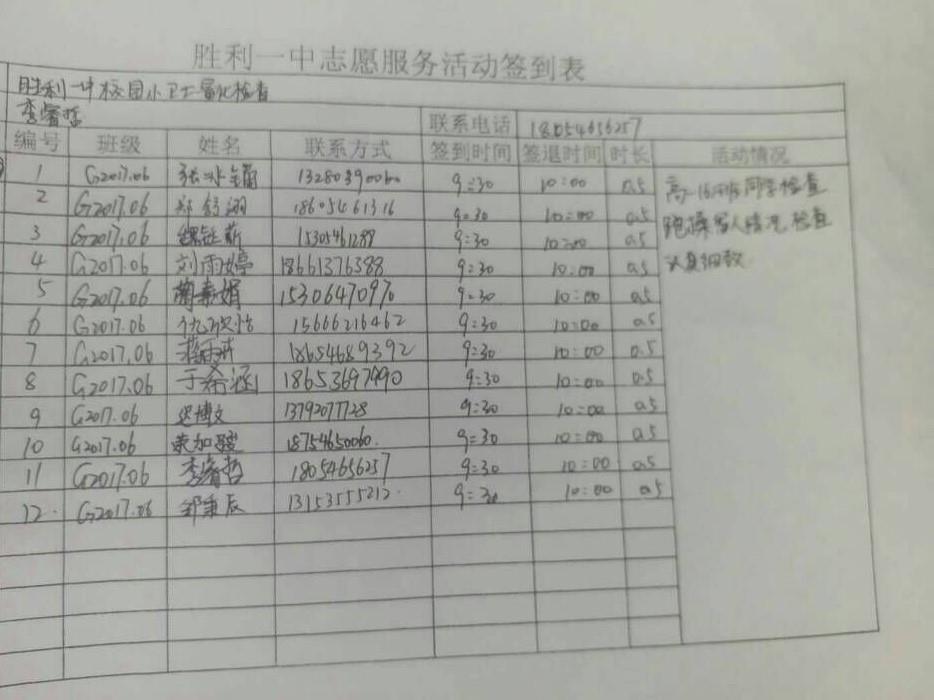 胜利一中志愿服务活动签到表
胜利一中校园小卫士量化检查
李睿哲 联系电话 18054656257
编号 班级 姓名 联系方式 签到时间 签退时间 时长 活动情况
1 G2017.06 张冰 13280390060 9:30 10:00 0.5 高一16班同学检查
2 G2017.06 郑舒 18605461316 9:30 10:00 0.5 跑操 人情况,检查
3 G2017.06 魏钰薪 15305461289 9:30 10:00 0.5 认真细致
4 G2017.06 刘雨婷 18661376388 9:30 10:00 0.5
5 G2017.06 素娟 15306470970 9:30 10:00 0.5
6 G2017.06 仇 怡 15666216462 9:30 10:00 0.5
7 G2017.06 蒋雨 18654689392 9:30 10:00 0.5
8 G2017.06 于希涵 18653697990 9:30 10:00 0.5
9 G2017.06 迟博文 13792077728 9:30 10:00 0.5
10 G2017.06 加骏 18754650060. 9:30 10:00 0.5
11 G2017.06 李睿哲 18054656257 9:30 10:00 0.5
12. G2017.06 邹秉辰 13153555212. 9:30 10:00 0.5